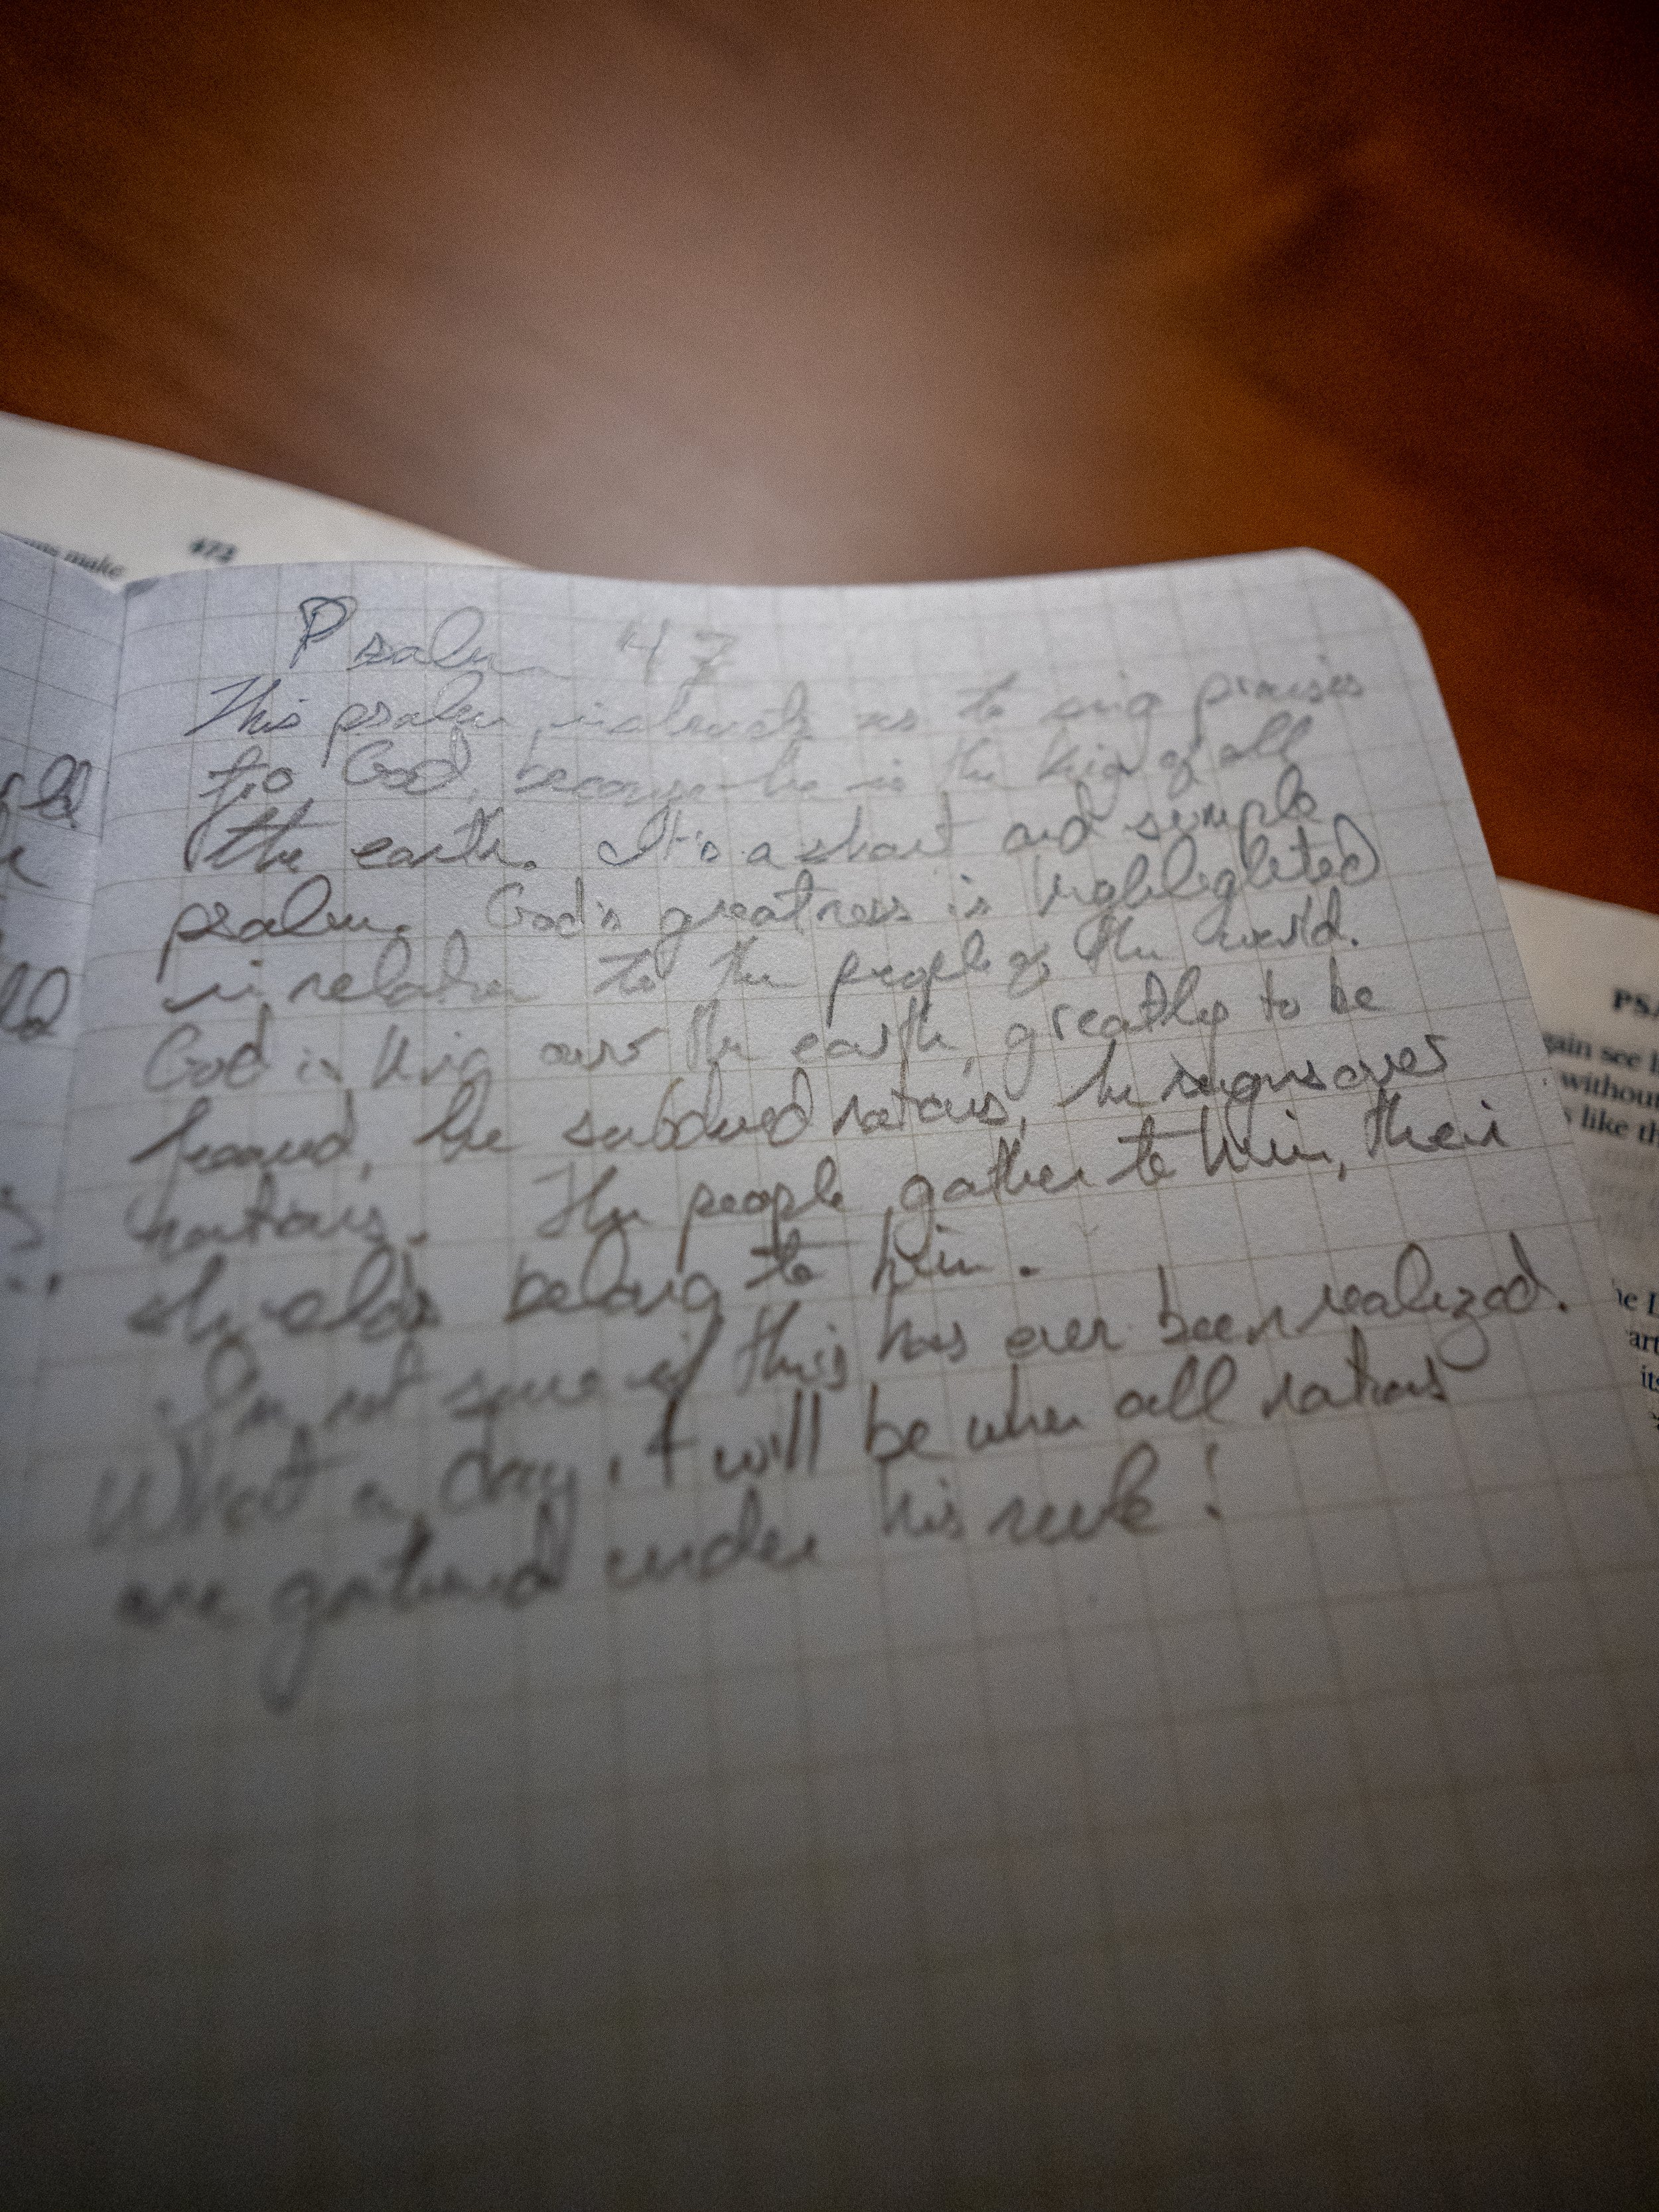 make
472
Psalm 47
This psalm instructs us to sing praises
to God, because he is the King of all
the earth. It's a short and simple
psalm. God's greatness is highlighted
in relation to the people of the world.
God is King over the earth, greatly to be
feared, he subdued nations, he reigns over
nations. The people gather to him, their
shields belong to him.
I'm not sure if this has ever been realized.
What a day it will be when all nations
are gathered under his rule!
PSA
gain see l
without
like th
he L
art
its